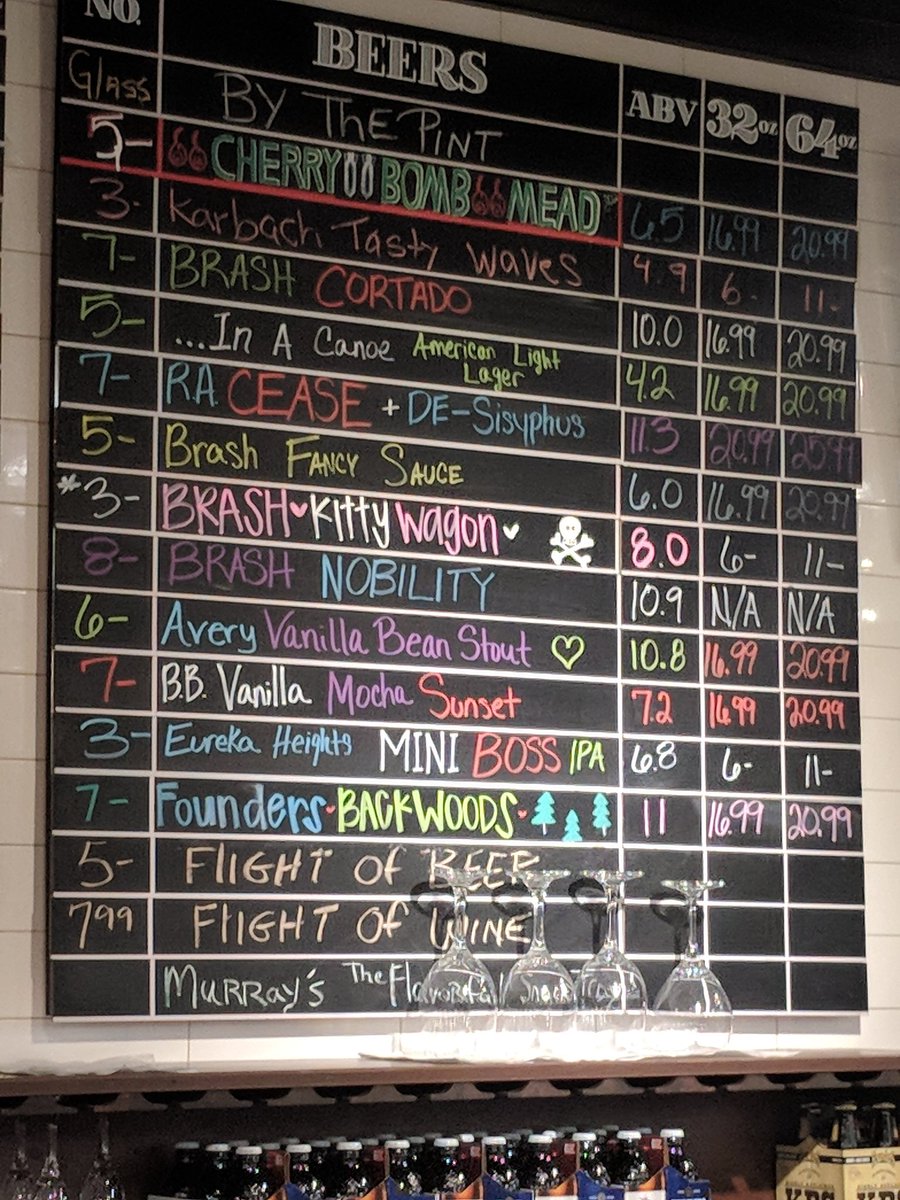 NO. BEERS ABV 32oz 64oz
Glass BY THE PINT
5- CHERRY BOMB MEAD 6.5 16.99 20.99
3- Karbach Tasty Waves 4.9 6- 11-
7- BRASH CORTADO 10.0 16.99 20.99
5- ...In A Canoe American Light Lager 4.2 16.99 20.99
7- RA CEASE + DE-Sisyphus 11.3 20.99 25.99
5- Brash FANCY SAUCE 6.0 16.99 20.99
*3- BRASH Kitty Wagon 8.0 6- 11-
8- BRASH NOBILITY 10.9 N/A N/A
6- Avery Vanilla Bean Stout 10.8 16.99 20.99
7- B.B. Vanilla Mocha Sunset 7.2 16.99 20.99
3- Eureka Heights MINI BOSS IPA 6.8 6- 11-
7- Founders BACKWOODS 11 16.99 20.99
5- FLIGHT OF BEER
7.99 FLIGHT OF WINE
MURRay's The